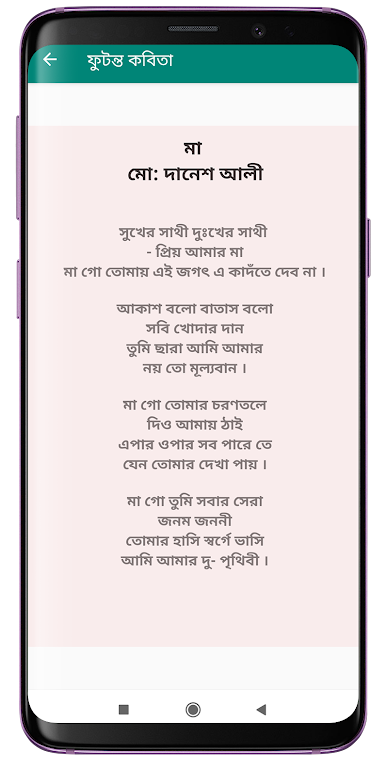 ফুটন্ত কবিতা
মা
মো: দানেশ আলী
সুখের সাথী দুঃখের সাথী
- প্রিয় আমার মা
মা গো তোমায় এই জগৎ এ কাদঁতে দেব না ।
আকাশ বলো বাতাস বলো
সবি খোদার দান
তুমি ছারা আমি আমার
নয় তো মূল্যবান ।
মা গো তোমার চরণতলে
দিও আমায় ঠাই
এপার ওপার সব পারে তে
যেন তোমার দেখা পায় ।
মা গো তুমি সবার সেরা
জনম জননী
তোমার হাসি স্বর্গে ভাসি
আমি আমার দু- পৃথিবী ।